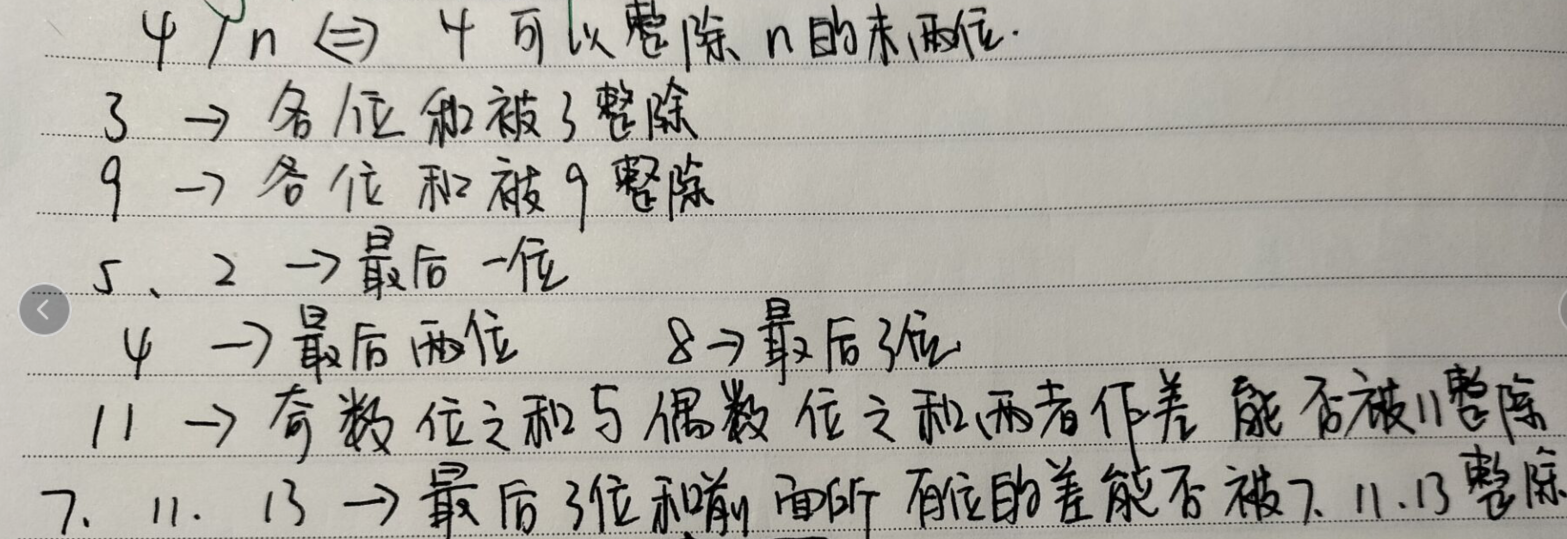 4 / n ⇔ 4 可以整除 n 的末两位.
3 → 各位和被3整除
9 → 各位和被9整除
5、2 → 最后一位
4 → 最后两位 8 → 最后3位
11 → 奇数位之和与偶数位之和两者作差能否被11整除
7. 11. 13 → 最后3位和前面所有位的差能否被7. 11. 13整除